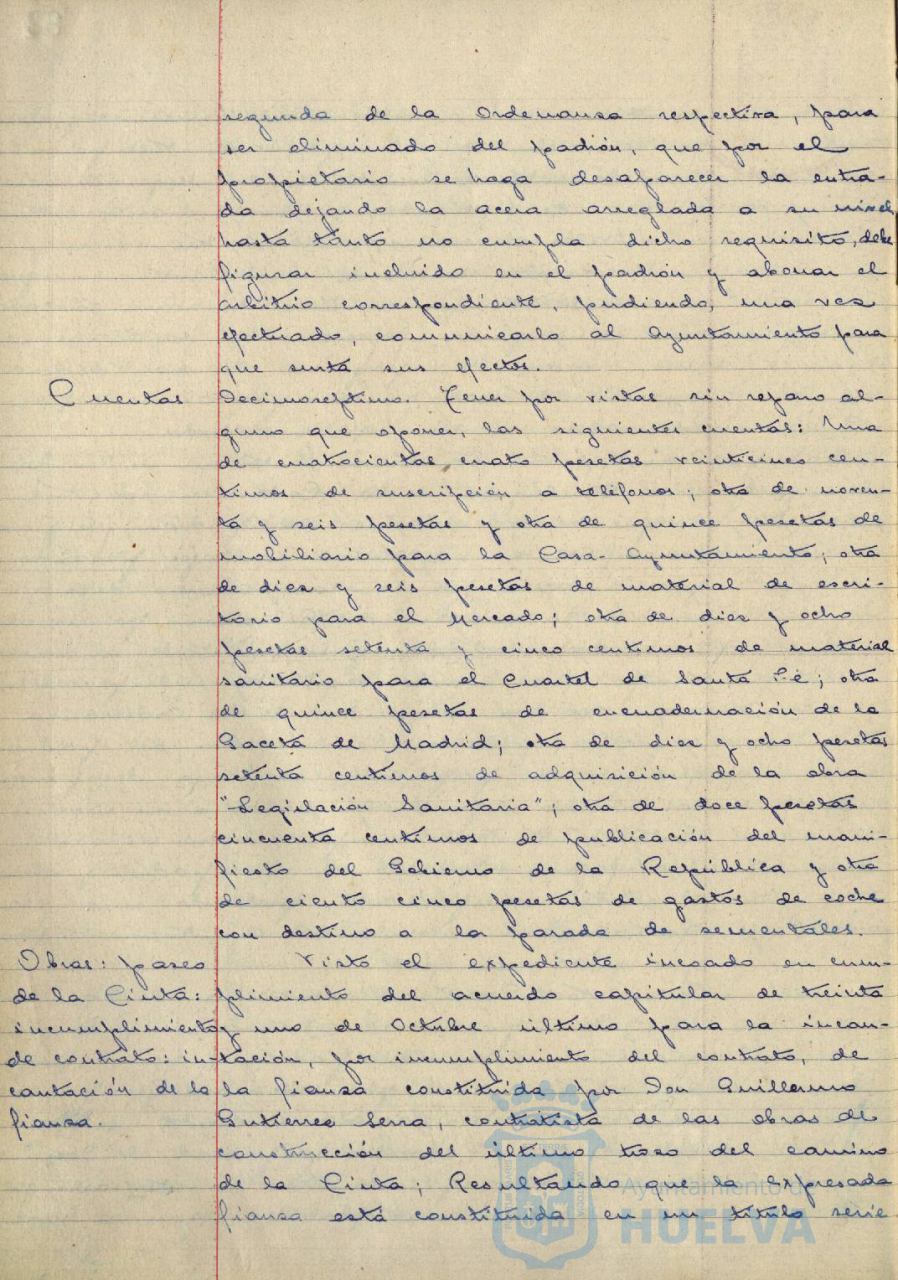 segunda de la Ordenanza respectiva, para
ser eliminado del padrón, que por el
propietario se haga desaparecer la entra-
da dejando la acera arreglada a su nivel,
hasta tanto no cumpla dicho requisito, debe
figurar incluido en el padrón y abonar el
arbitrio correspondiente, pudiendo, una vez
efectuado, comunicarlo al Ayuntamiento para
que surta sus efectos.
Cuentas
Decimoséptimo. Tener por vistas sin reparo al-
guno que oponer, las siguientes cuentas: Una
de cuatrocientas cuatro pesetas veinticinco cen-
timos de suscripción a teléfonos; otra de noven-
ta y seis pesetas y otra de quince pesetas de
mobiliario para la Casa-Ayuntamiento; otra
de diez y seis pesetas de material de escri-
torio para el Mercado; otra de diez y ocho
pesetas setenta y cinco centimos de material
sanitario para el Cuartel de Santa Fé; otra
de quince pesetas de encuadernación de la
Gaceta de Madrid; otra de diez y ocho pesetas
setenta centimos de adquisición de la obra
"Legislación Sanitaria"; otra de doce pesetas
cincuenta centimos de publicación del mani-
fiesto del Gobierno de la República y otra
de ciento cinco pesetas de gastos de coche
con destino a la parada de sementales.
Obras: paseo
de la Cinta:
incumplimiento
de contrato: in-
cautación de la
fianza.
Visto el expediente incoado en cum-
plimiento del acuerdo capitular de treinta
y uno de Octubre último para la incau-
tación, por incumplimiento del contrato, de
la fianza constituida por Don Guillermo
Gutierrez Serra, contratista de las obras de
construcción del último trozo del camino
de la Cinta; Resultando que la expresada
fianza está constituida en un título serie
Ayuntamiento de
HUELVA